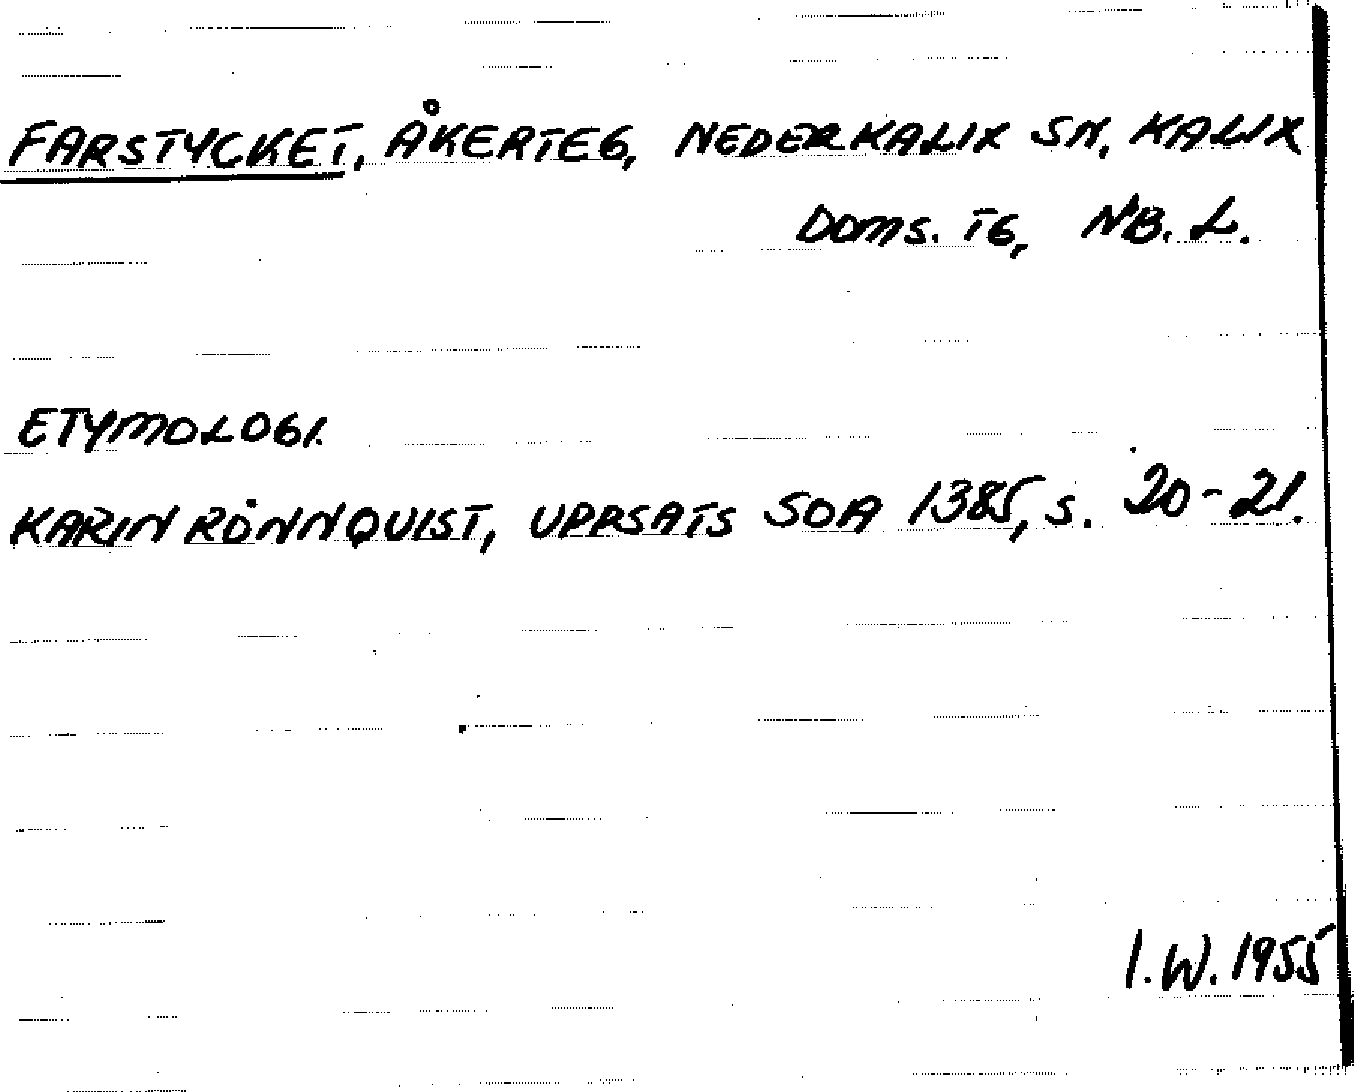 FARSTYCKET, ÅKERTEG, NEDERKALIX SN, KALIX
DOMS. TG, NB. L.
ETYMOLOGI.
KARIN RÖNNQUIST, UPPSATS SOA 1385, S. 20-21.
I.W. 1955